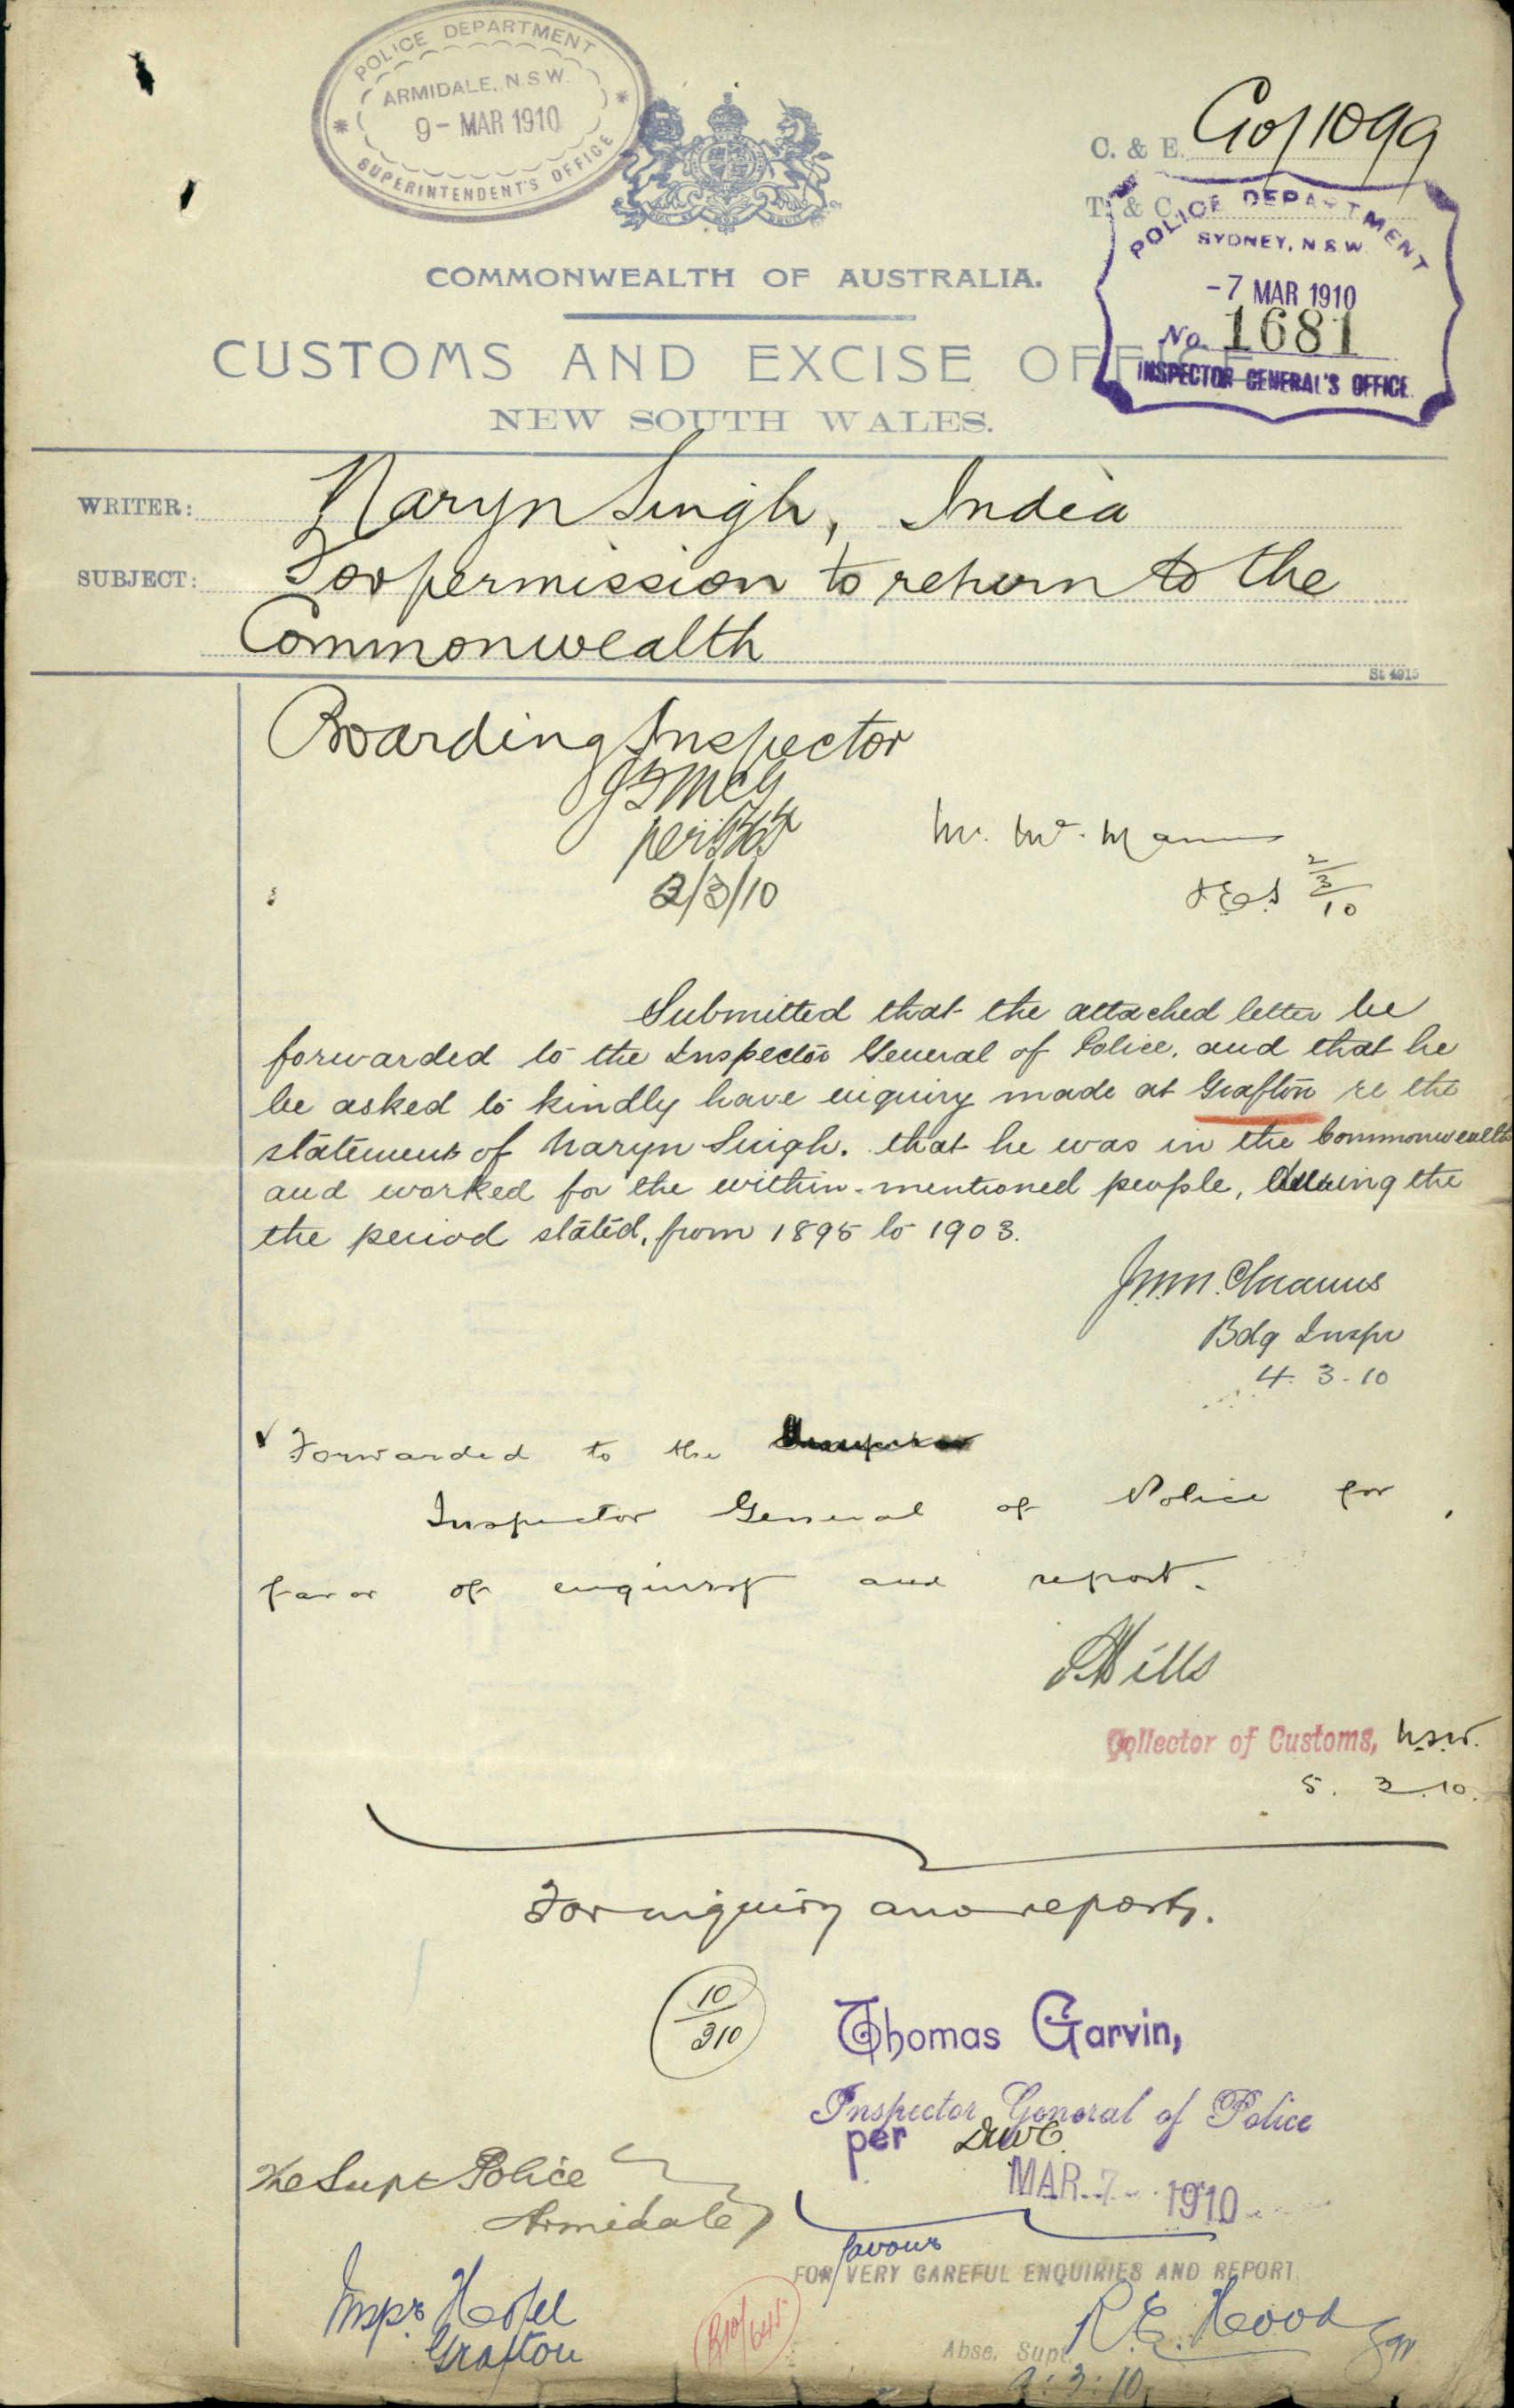 POLICE DEPARTMENT
ARMIDALE, N.S.W.
9 - MAR 1910
SUPERINTENDENT'S OFFICE
C. & E. G10/1099
T. & C.
POLICE DEPARTMENT
SYDNEY, N.S.W.
-7 MAR 1910
No. 1681
INSPECTOR GENERAL'S OFFICE.
COMMONWEALTH OF AUSTRALIA.
CUSTOMS AND EXCISE OFFICE
NEW SOUTH WALES.
WRITER: Naryn Singh, India
SUBJECT: For permission to return to the
Commonwealth
St 4915
Boarding Inspector
per
2/3/10
Mr.
2/3/10
Submitted that the attached letter be
forwarded to the Inspector General of Police, and that he
be asked to kindly have enquiry made at Grafton re the
statement of Naryn Singh. that he was in the Commonwealth
and worked for the within-mentioned people, during the
the period stated, from 1895 to 1903.
Bdg Inspr
4. 3. 10
Forwarded to the
Inspector General of Police for
favor of enquiry and report.
Mills
Collector of Customs, N.S.W.
5. 3. 10.
For inquiry and report.
10/310
Thomas Garvin,
Inspector General of Police
per
MAR 7 1910
The Supt Police
Armidale
favour
FOR VERY CAREFUL ENQUIRIES AND REPORT.
Inspr.
Grafton
B10/645
R. E. Hood
Abse. Supt.
9:3:10